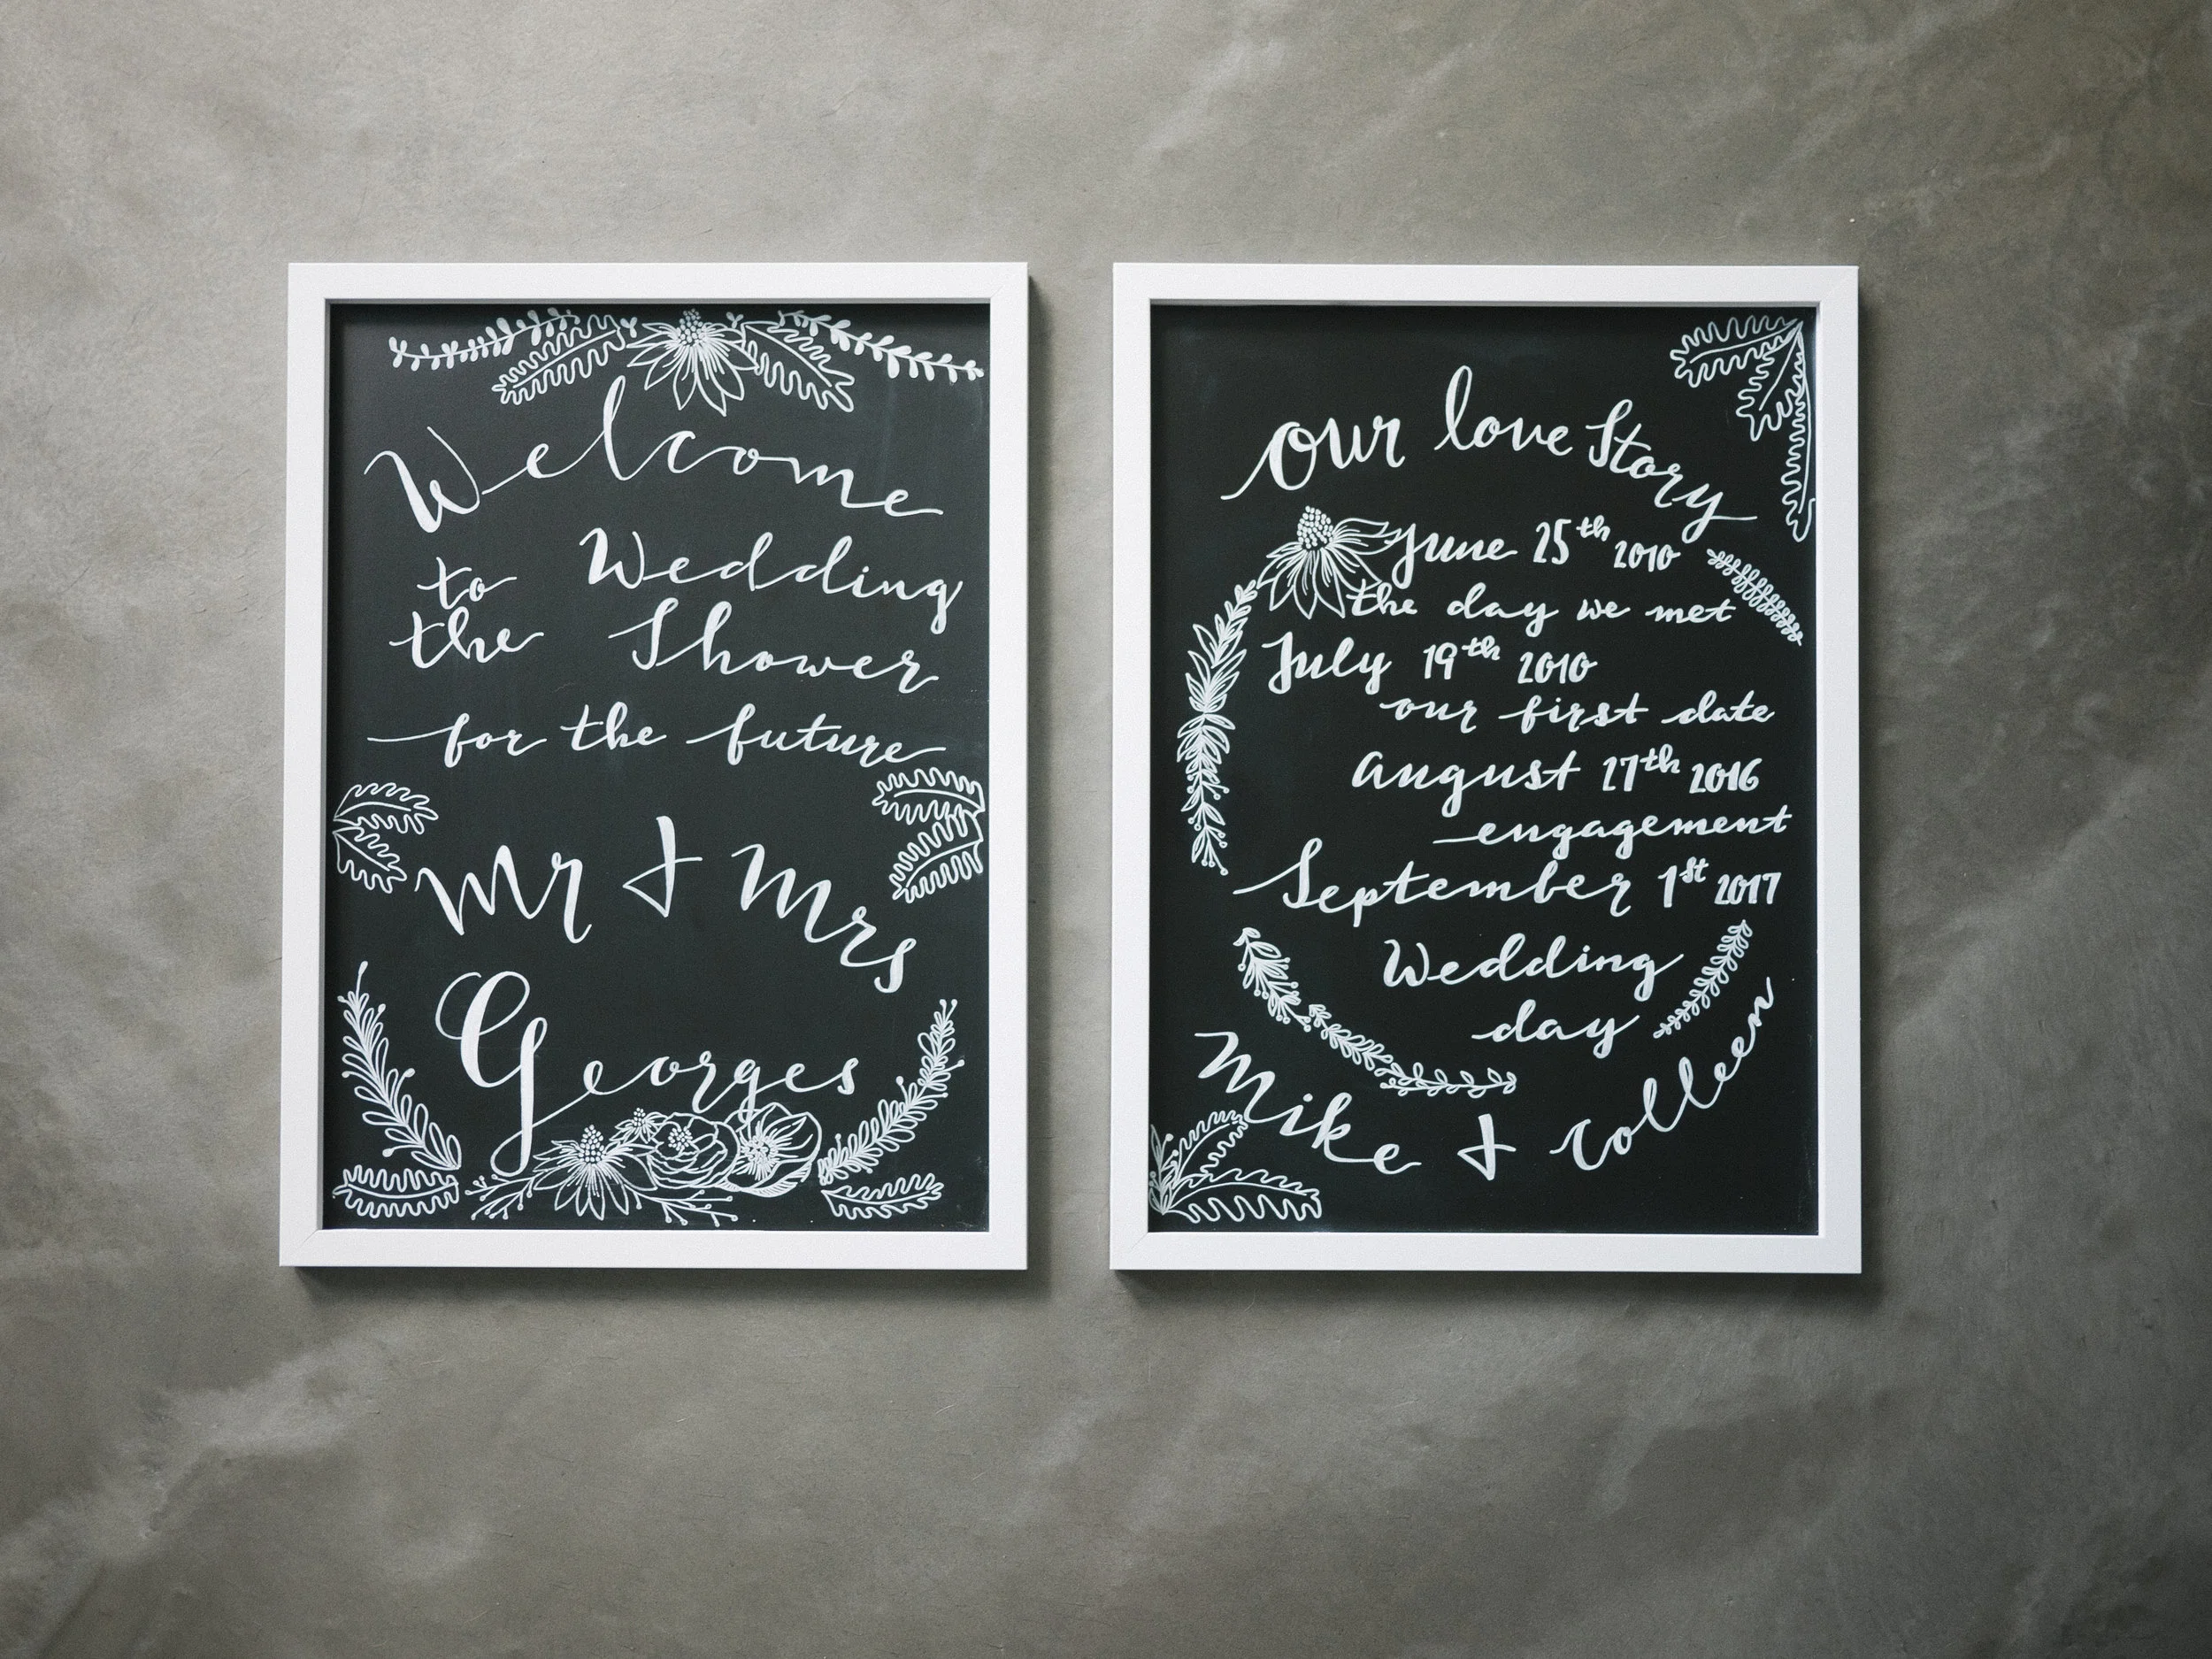 Welcome
to Wedding
the Shower
for the future
Mr & Mrs
Georges
our love Story
June 25th 2010
the day we met
July 19th 2010
our first date
August 27th 2016
engagement
September 1st 2017
Wedding
day
Mike & Colleen